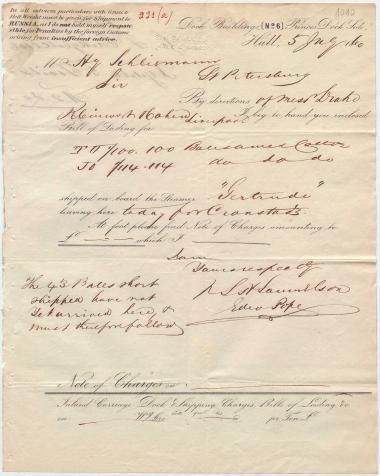 In all advices particulars with times &
that Would must be given for Shipment to
RUSSIA, as I do not hold myself respon-
sible for Penalties by the foreign Customs
arising from insufficient advice.
221(a)
Dock Buildings, (No 6,) Princes Dock Side
Hull, 5 July 60
Hy Schliemann
Sir St Petersburg
By directions of Messrs Drake
Kleinwort & Cohen Liverpool I beg to hand you inclosed
Bill of Lading for
100. 100 Bales Cotton
114. 114 do do do
shipped on board the Steamer "Gertrude"
leaving here today for Cronstadt
At foot please find Note of Charges amounting to
£ which I
I am
Yours respectfy
The 43 Bales short
shipped have not
yet arrived here, &
must therefore follow
Edwd Pope
Note of Charges on
Inland Carriage, Dock & Shipping Charges, Bills of Lading &c
on per Ton £